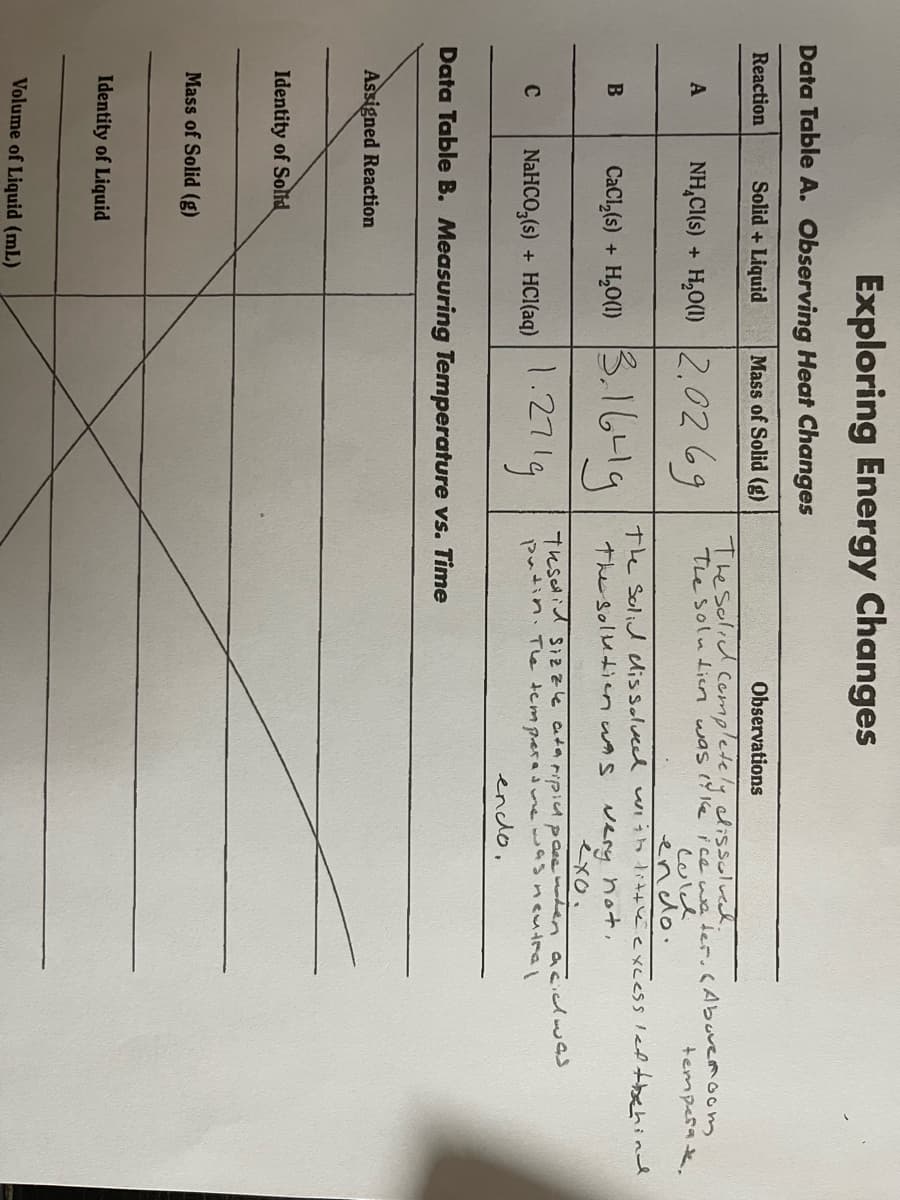 Exploring Energy Changes
Data Table A. Observing Heat Changes
Reaction Solid + Liquid Mass of Solid (g) Observations
A NH₄Cl(s) + H₂O(l) 2.026g The solid completely dissolved.
The solution was like ice water. (Above room temperate.
cold
endo.
B CaCl₂(s) + H₂O(l) 3.164g The solid dissolved with little excess left behind
the solution was very hot.
exo.
C NaHCO₃(s) + HCl(aq) 1.271g The solid sizzle at a ripid pace when acid was
put in. The temperature was neutral
endo.
Data Table B. Measuring Temperature vs. Time
Assigned Reaction
Identity of Solid
Mass of Solid (g)
Identity of Liquid
Volume of Liquid (mL)